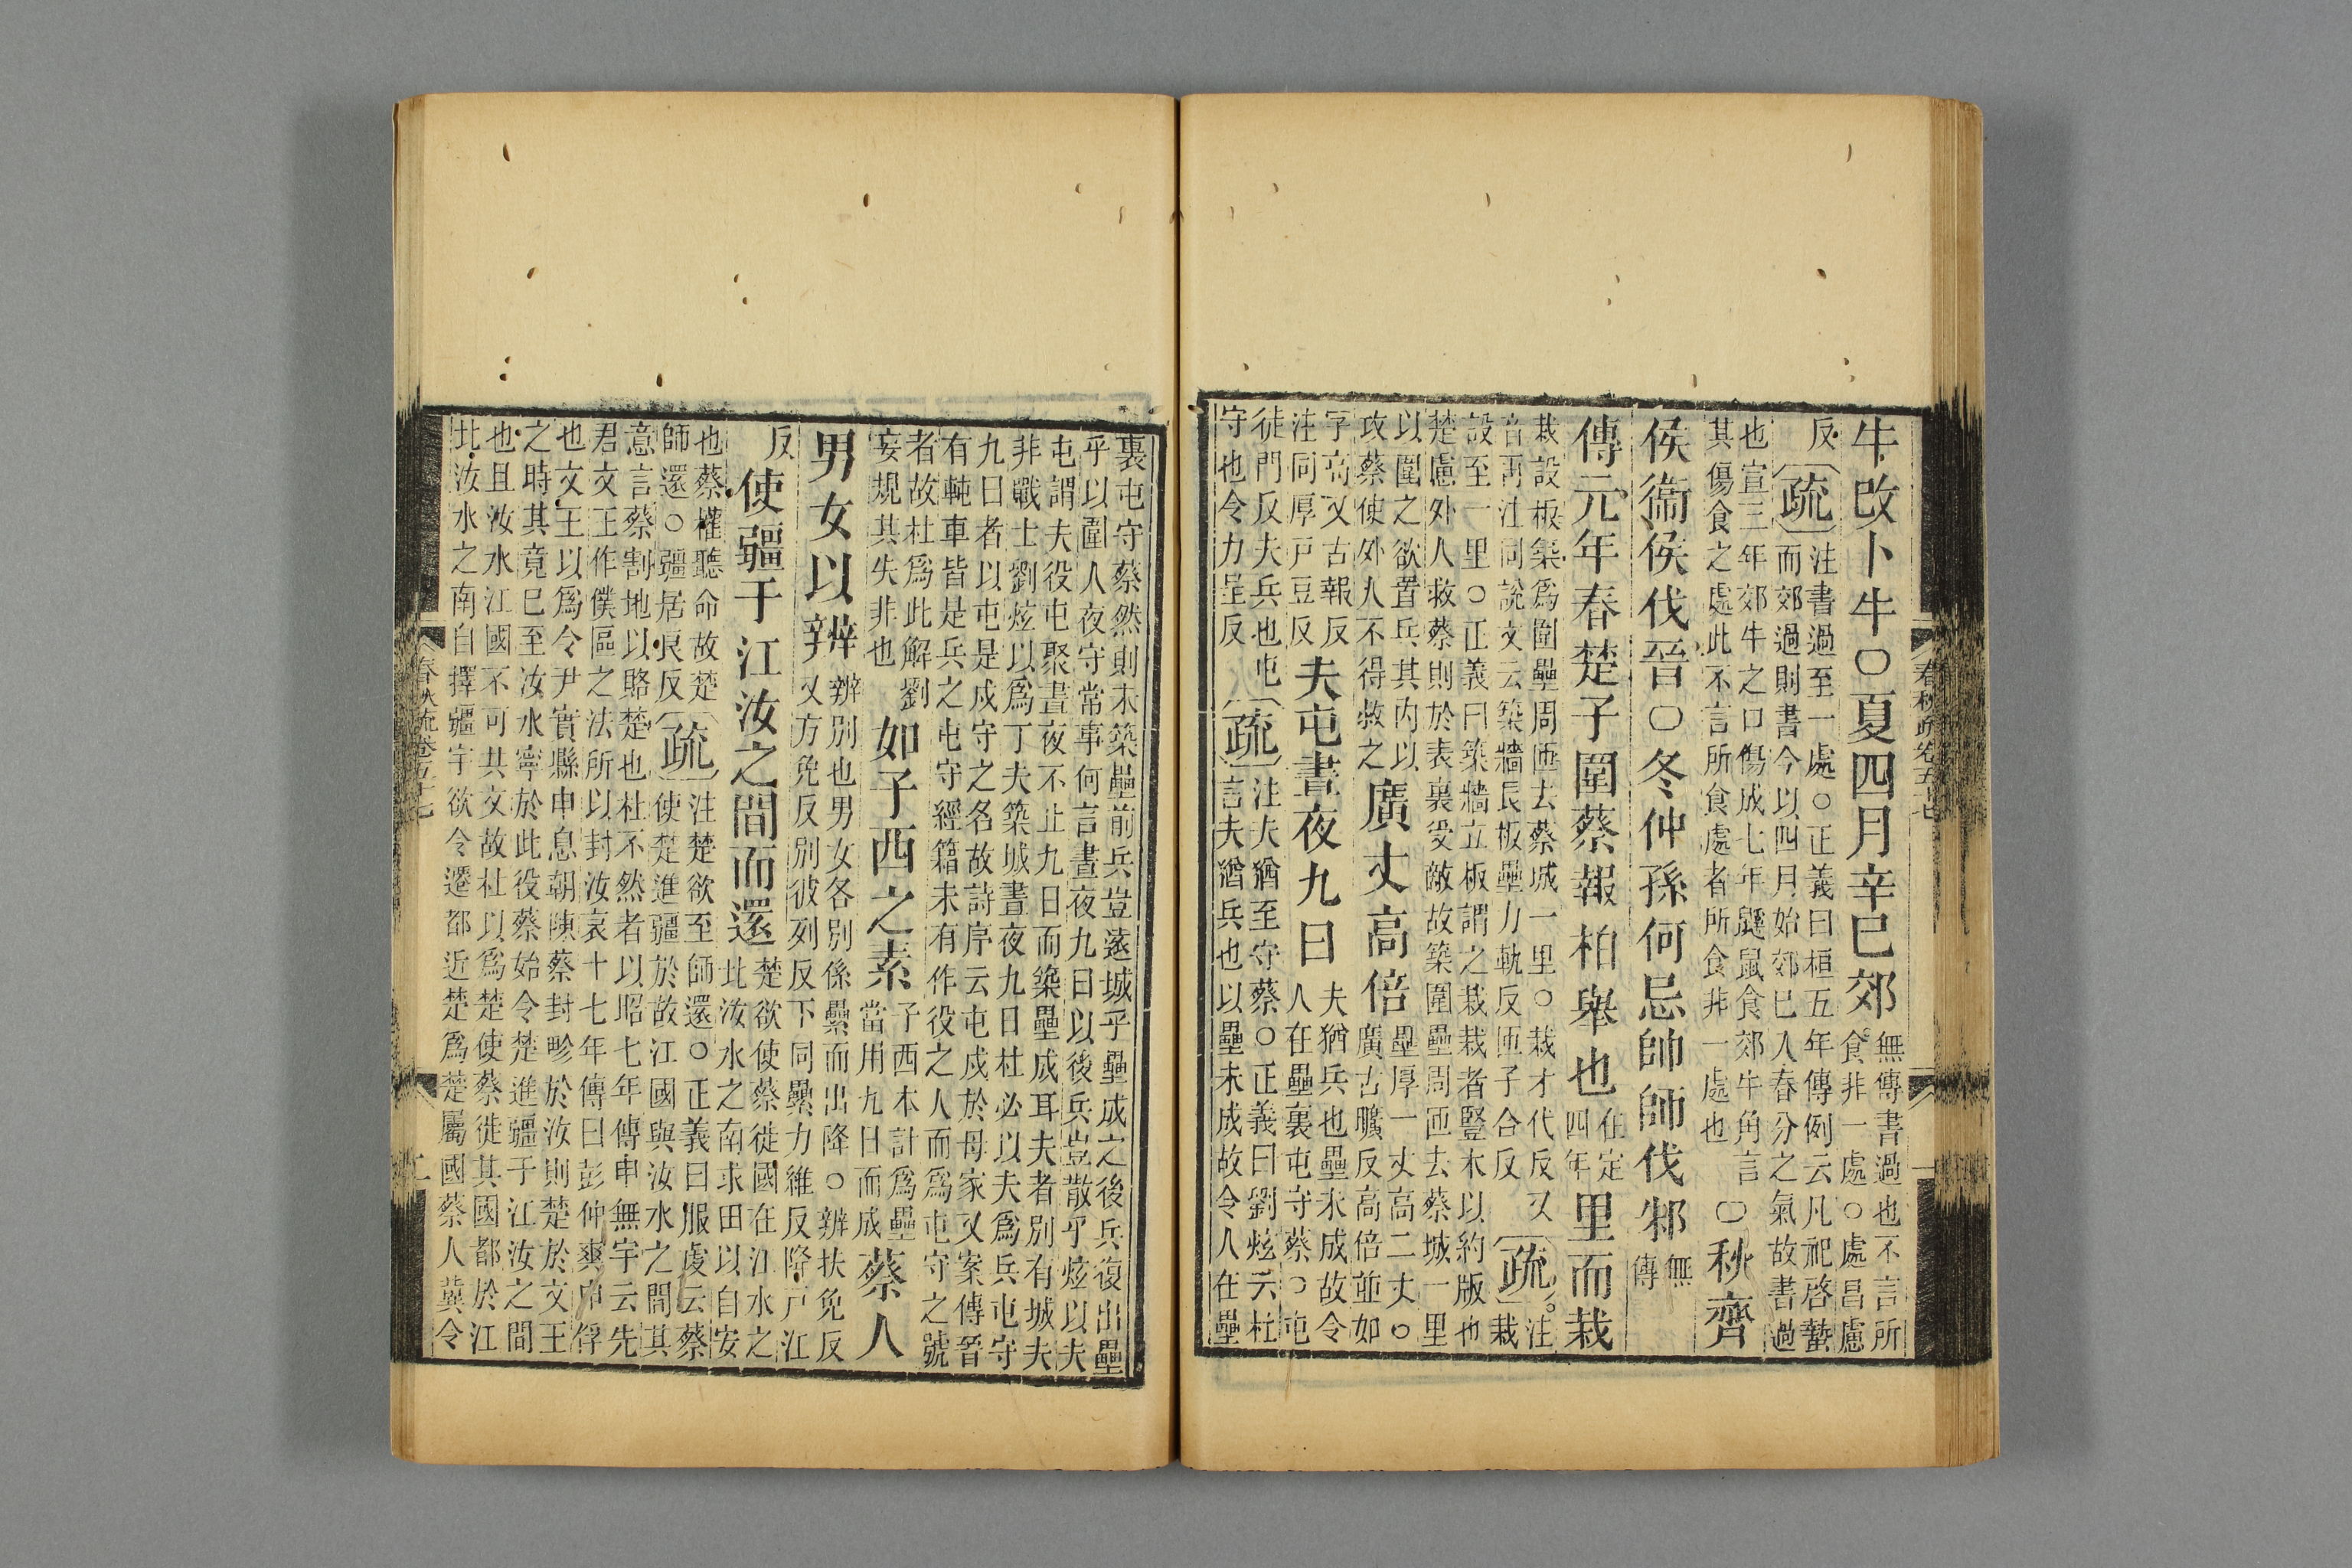 牛改卜牛○夏四月辛巳郊無傳書過也不言所食非一處○處昌慮
反疏注書過至一處○正義曰桓五年傳例云凡祀啓蟄而郊過則書今以四月始郊巳入春分之氣故書過
也宣三年郊牛之口傷成七年鼷鼠食郊牛角言其傷食之處此不言所食處者所食非一處也○秋齊
侯衞侯伐晉○冬仲孫何忌帥師伐邾無傳
傳元年春楚子圍蔡報柏舉也在定四年里而栽
栽設板築爲圍壘周匝去蔡城一里○栽才代反又音再注同說文云築牆長板壘力軌反匝子合反疏注栽
設至一里○正義曰築牆立板謂之栽栽者豎木以約版也楚慮外人救蔡則於表裏受敵故築圍壘周匝去蔡城一里
以圍之欲置兵其内以攻蔡使外人不得救之廣丈高倍壘厚一丈高二丈○廣古曠反高倍並如
字高又古報反注同厚戸豆反夫屯晝夜九日夫猶兵也壘未成故令人在壘裏屯守蔡○屯
徒門反夫兵也屯守也令力呈反疏注夫猶至守蔡○正義曰劉炫云杜言夫猶兵也以壘未成故令人在壘
裏屯守蔡然則未築壘前兵豈遠城乎壘成之後兵復出壘乎以圍人夜守常事何言晝夜九日以後兵豈散乎炫以夫
屯謂夫役屯聚晝夜不止九日而築壘成耳夫者別有城夫非戰士劉炫以爲丁夫築城晝夜九日杜必以夫爲兵屯守
九日者以屯是戍守之名故詩序云屯戍於母家又案傳晉有軘車皆是兵之屯守經籍未有作役之人而爲屯守之號
者故杜爲此解劉妄規其失非也如子西之素子西本計爲壘當用九日而成蔡人
男女以辨辨別也男女各別係纍而出降○辨扶免反又方免反別彼列反下同纍力維反降戸江
反使疆于江汝之間而還楚欲使蔡徙國在江水之北汝水之南求田以自安
也蔡權聽命故楚師還○疆居良反疏注楚欲至師還○正義曰服虔云蔡使楚進疆於故江國與汝水之間其
意言蔡割地以賂楚也杜不然者以昭七年傳申無宇云先君文王作僕區之法所以封汝哀十七年傳曰彭仲爽申俘
也文王以爲令尹實縣申息朝陳蔡封畛於汝則楚於文王之時其竟巳至汝水寧於此役蔡始令楚進疆于江汝之間
也且汝水江國不可共文故杜以爲楚使蔡徙其國都於江北汝水之南自擇疆宇欲令遷都近楚爲楚屬國蔡人冀令
春秋疏卷五十七
一
春秋疏卷五十七
二